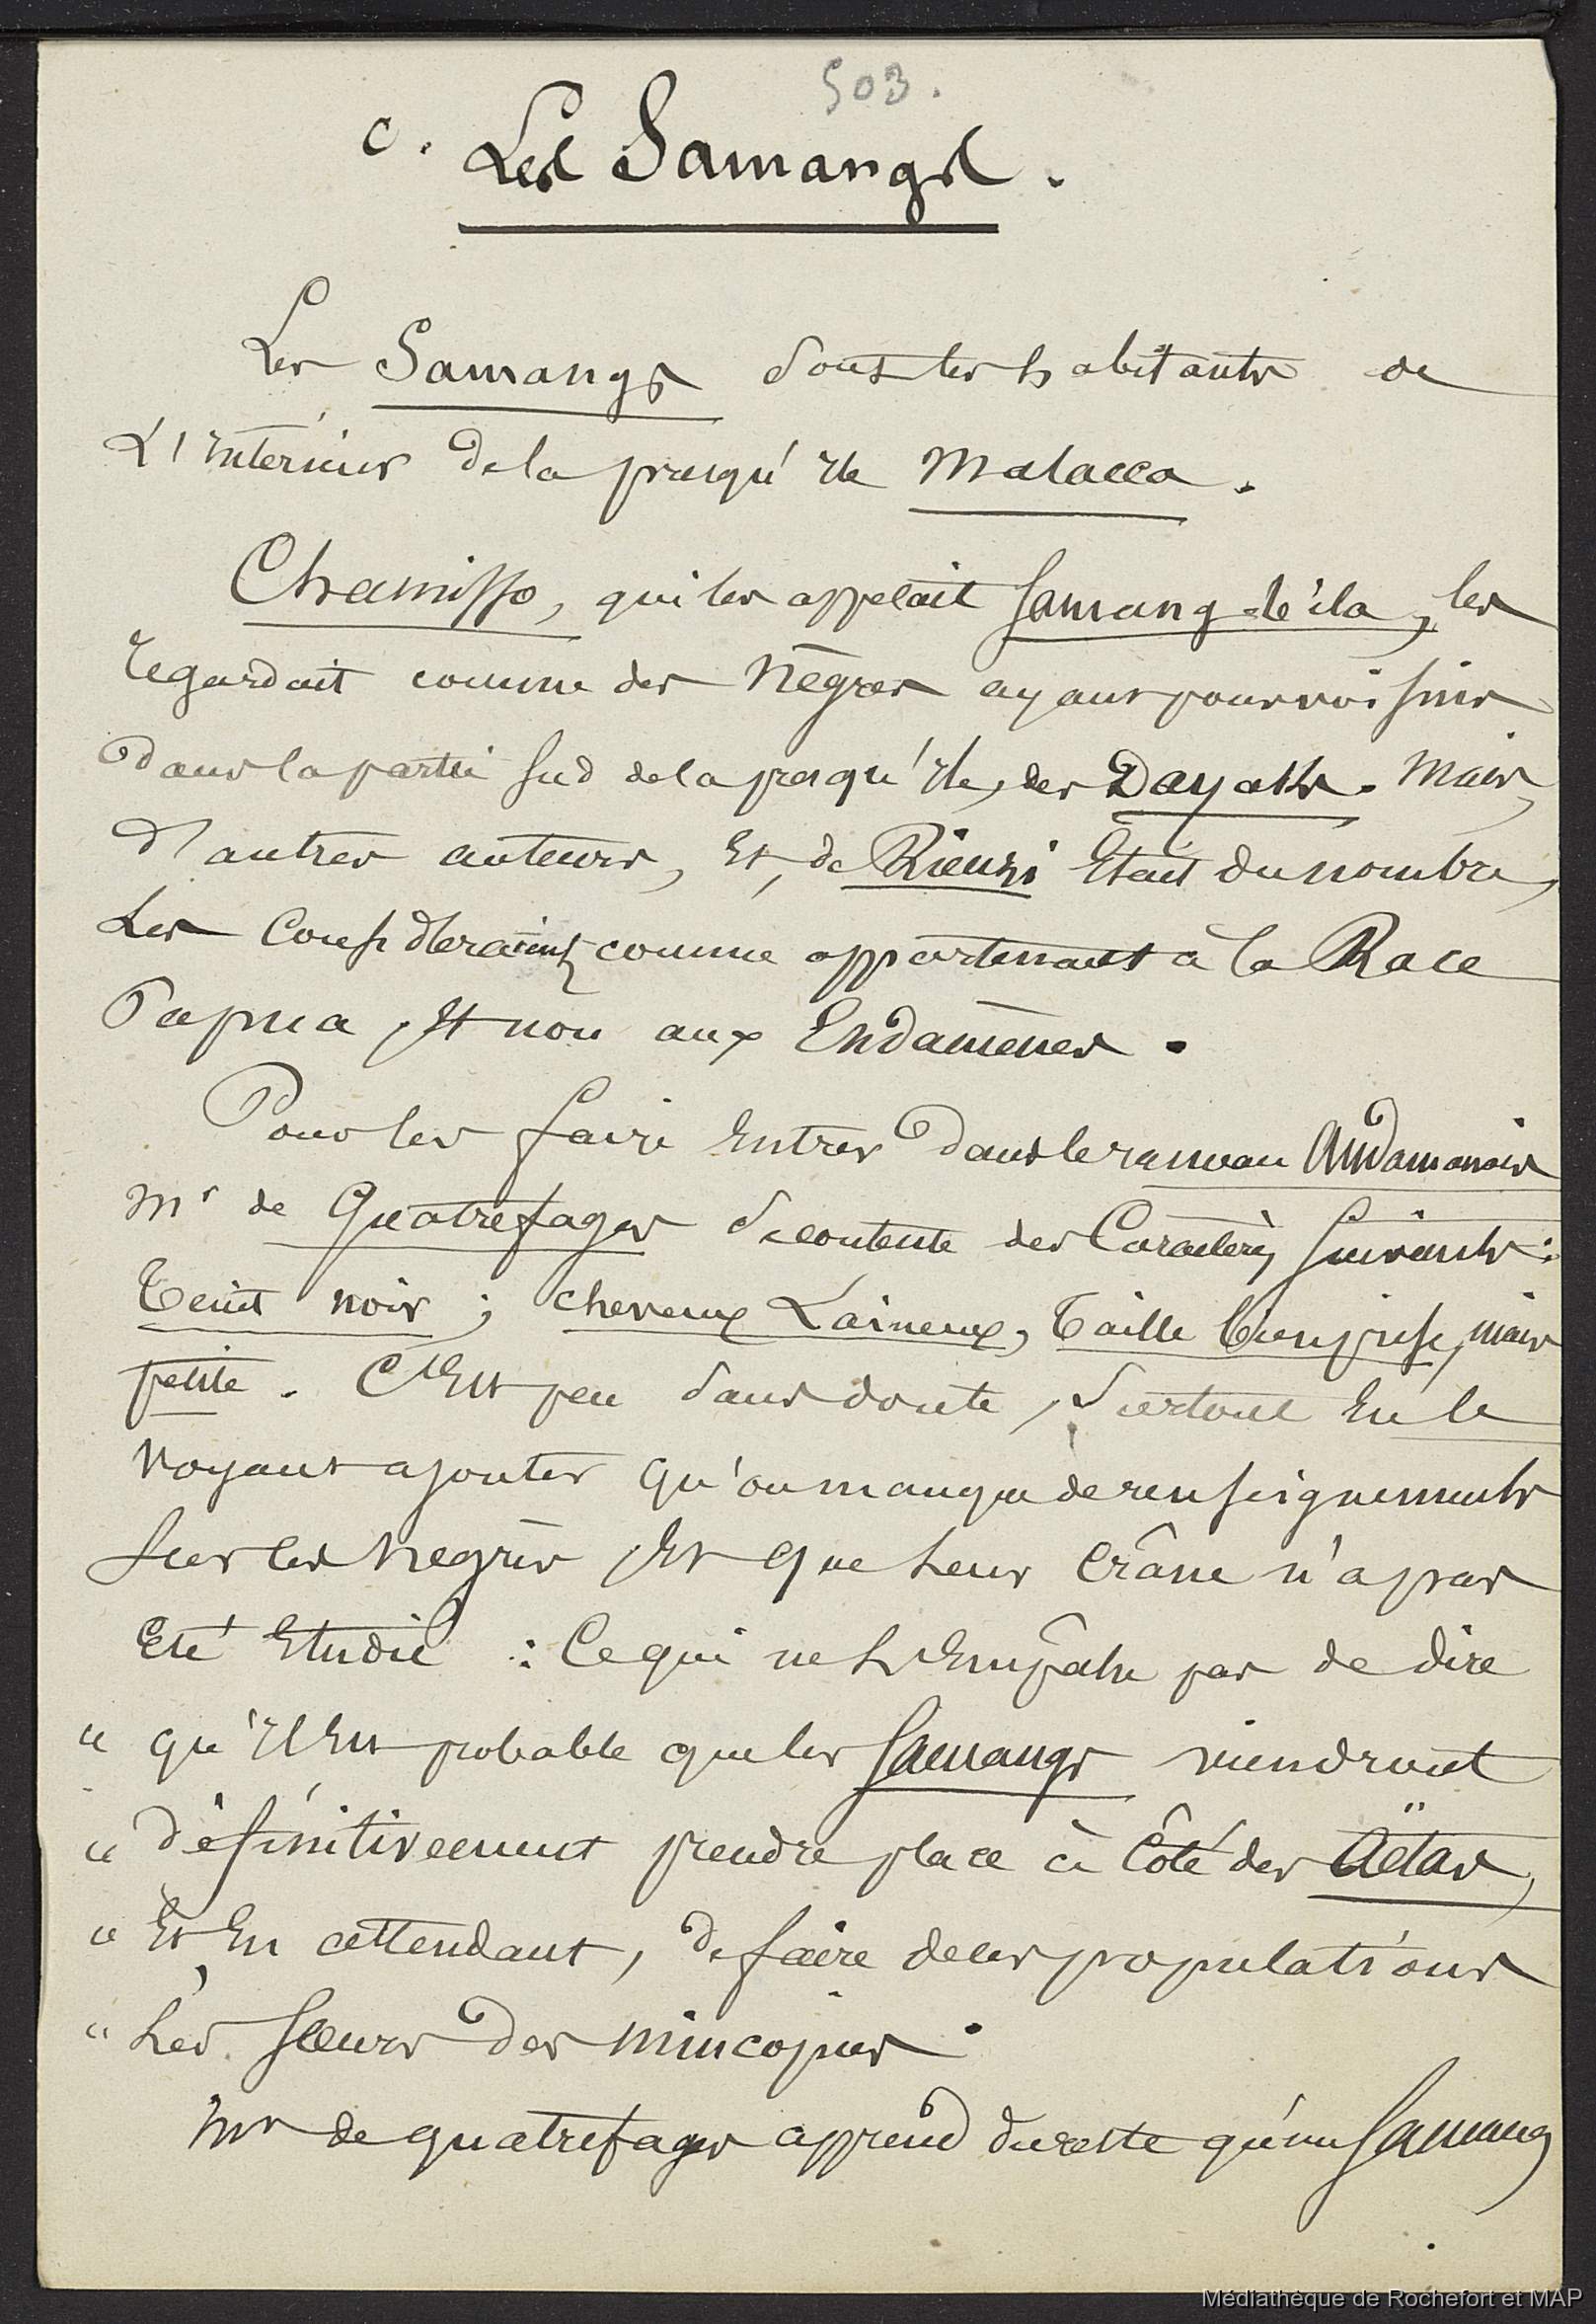 503.
C. Les Samangs.
Les Samangs sont les habitants de
L'Intérieur de la presqu'Ile Malacca.
Chamisso, qui les appelait Samang de ila, les
regardait comme des Nègres ayant pour voisins
Dans la partie sud de la presqu'Ile, des Dayaks. Mais,
d'autres auteurs, Et, de Rienzi Etait du nombre,
Les Considéraient comme appartenant à la Race
Papua, Et non aux Endamènes.
Pour les faire Entrer Dans le rameau Andamanais
Mr de Quatrefages se contente des Caractères suivants:
Teint noir; cheveux Laineux, Taille bien prise, mais
petite. C'Est peu sans doute, surtout En le
voyant ajouter qu'on manque de renseignements
sur les Nègres Et que Leur Crâne n'a pas
Eté Etudié : Ce qui ne L'Empêche pas de dire
" qu'Il Est probable que les Samangs viendront
" définitivement prendre place à Côté des Aëtas,
" Et En attendant, de faire de ces populations
" Les sœurs des Mincopies.
Mr de quatrefages apprend du reste qu'un Samang
Médiathèque de Rochefort et MAP